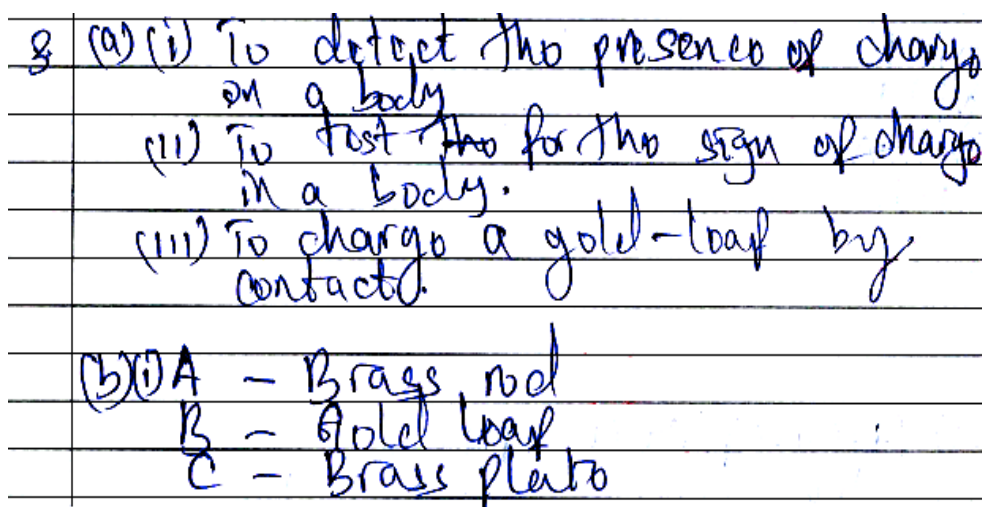 3 (a) (i) To detect the presence of charge
on a body
(ii) To test the for the sign of charge
in a body.
(iii) To charge a gold-leaf by
contact.
(b)(i) A - Brass rod
B - Gold leaf
C - Brass plate